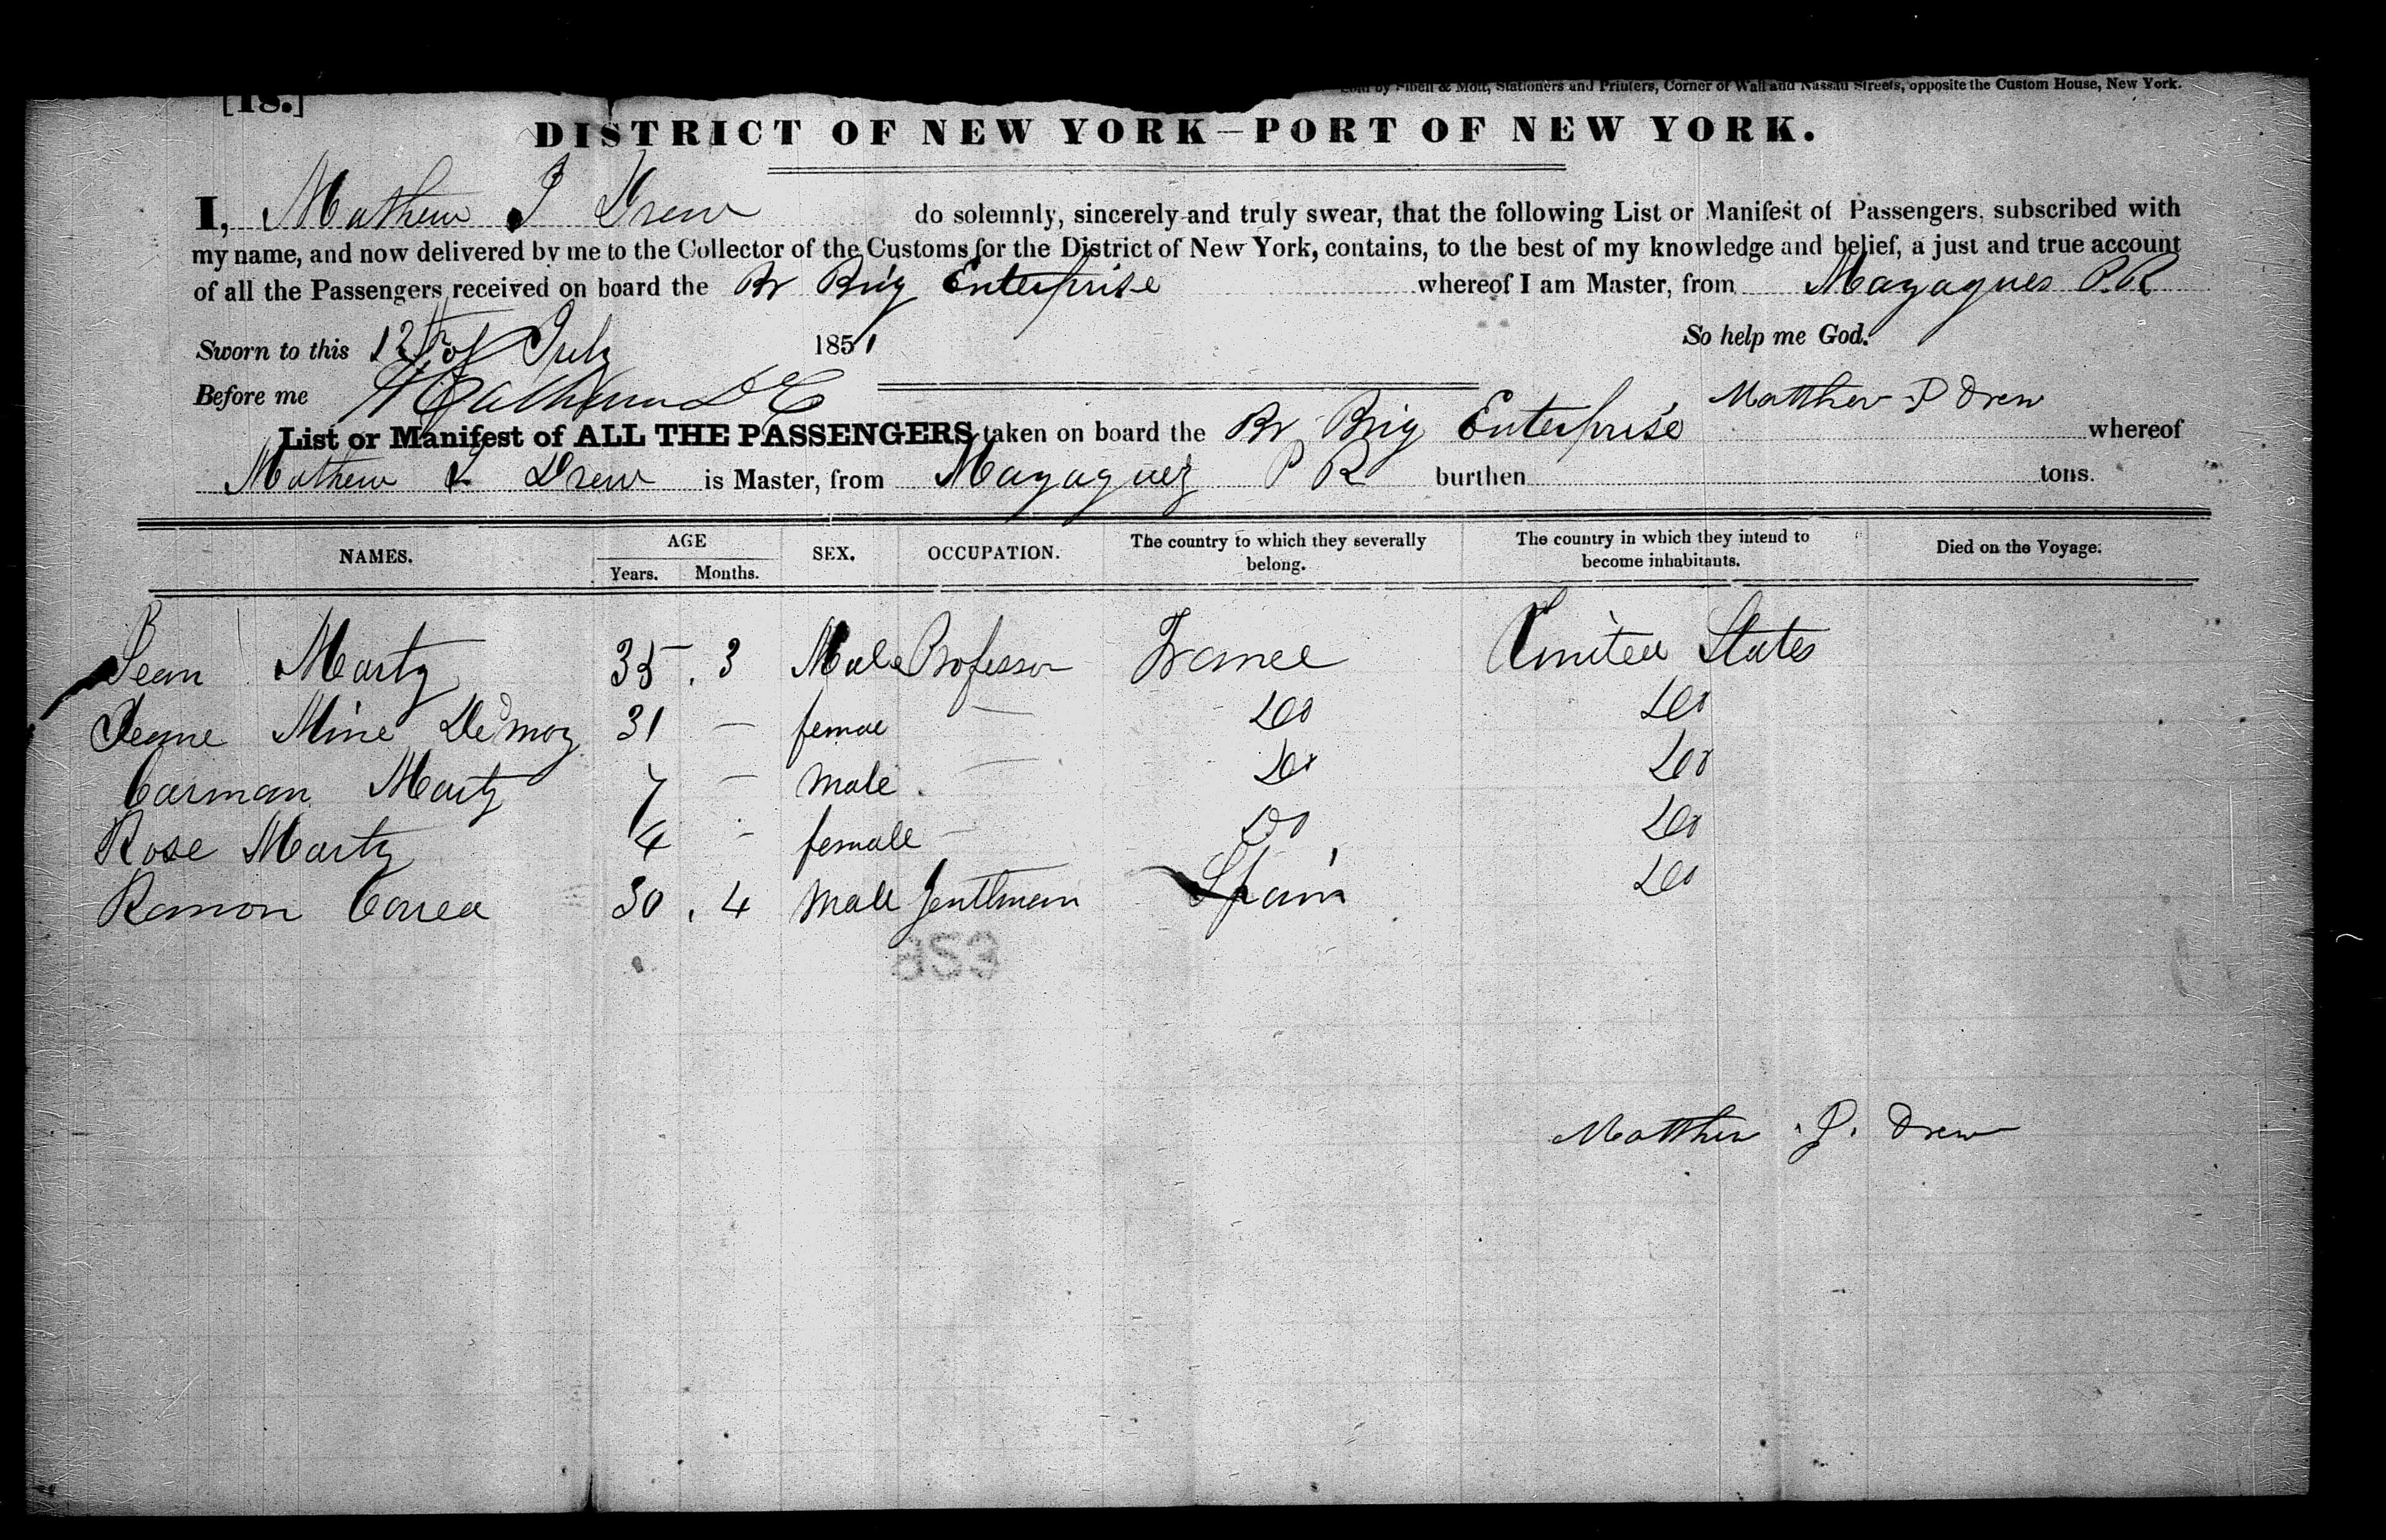 [18.]
Sold by Sibell & Mott, Stationers and Printers, Corner of Wall and Nassau Streets, opposite the Custom House, New York.
DISTRICT OF NEW YORK—PORT OF NEW YORK.
I, Mathew J Drew do solemnly, sincerely and truly swear, that the following List or Manifest of Passengers, subscribed with
my name, and now delivered by me to the Collector of the Customs for the District of New York, contains, to the best of my knowledge and belief, a just and true account
of all the Passengers received on board the Br Brig Enterprise whereof I am Master, from Mayagues P.R
Sworn to this 12th of July 1851 So help me God.
Before me
Matthew J Drew
List or Manifest of ALL THE PASSENGERS taken on board the Br Brig Enterprise whereof
Mathew J Drew is Master, from Mayaguez P R burthen tons.
NAMES. AGE Years. Months. SEX. OCCUPATION. The country to which they severally belong. The country in which they intend to become inhabitants. Died on the Voyage.
Jean Marty 35 . 3 Male Professor France United States
Jeane Mine Demoy 31 — femal — Do Do
Carman Marty 7 — male — Do Do
Rose Marty 4 - female — Do Do
Ramon Correa 30 . 4 Male Gentlman Spain Do
Matthew J. Drew